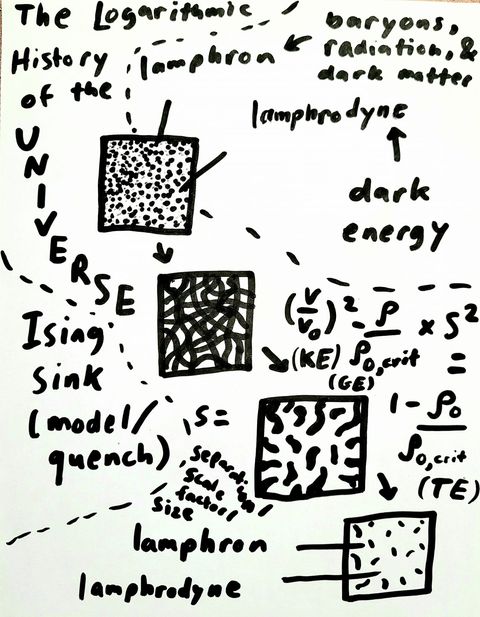 The Logarithmic
History
of the
UNIVERSE
lamphron
baryons,
radiation, &
dark matter
lamphrodyne
dark
energy
Ising
Sink
(model/
quench)
(v/v₀)² - ρ/ρ₀,crit × S² = 1 - ρ₀/ρ₀,crit
(KE)
(GE)
(TE)
S =
separation/
scale
factor/
size
lamphron
lamphrodyne